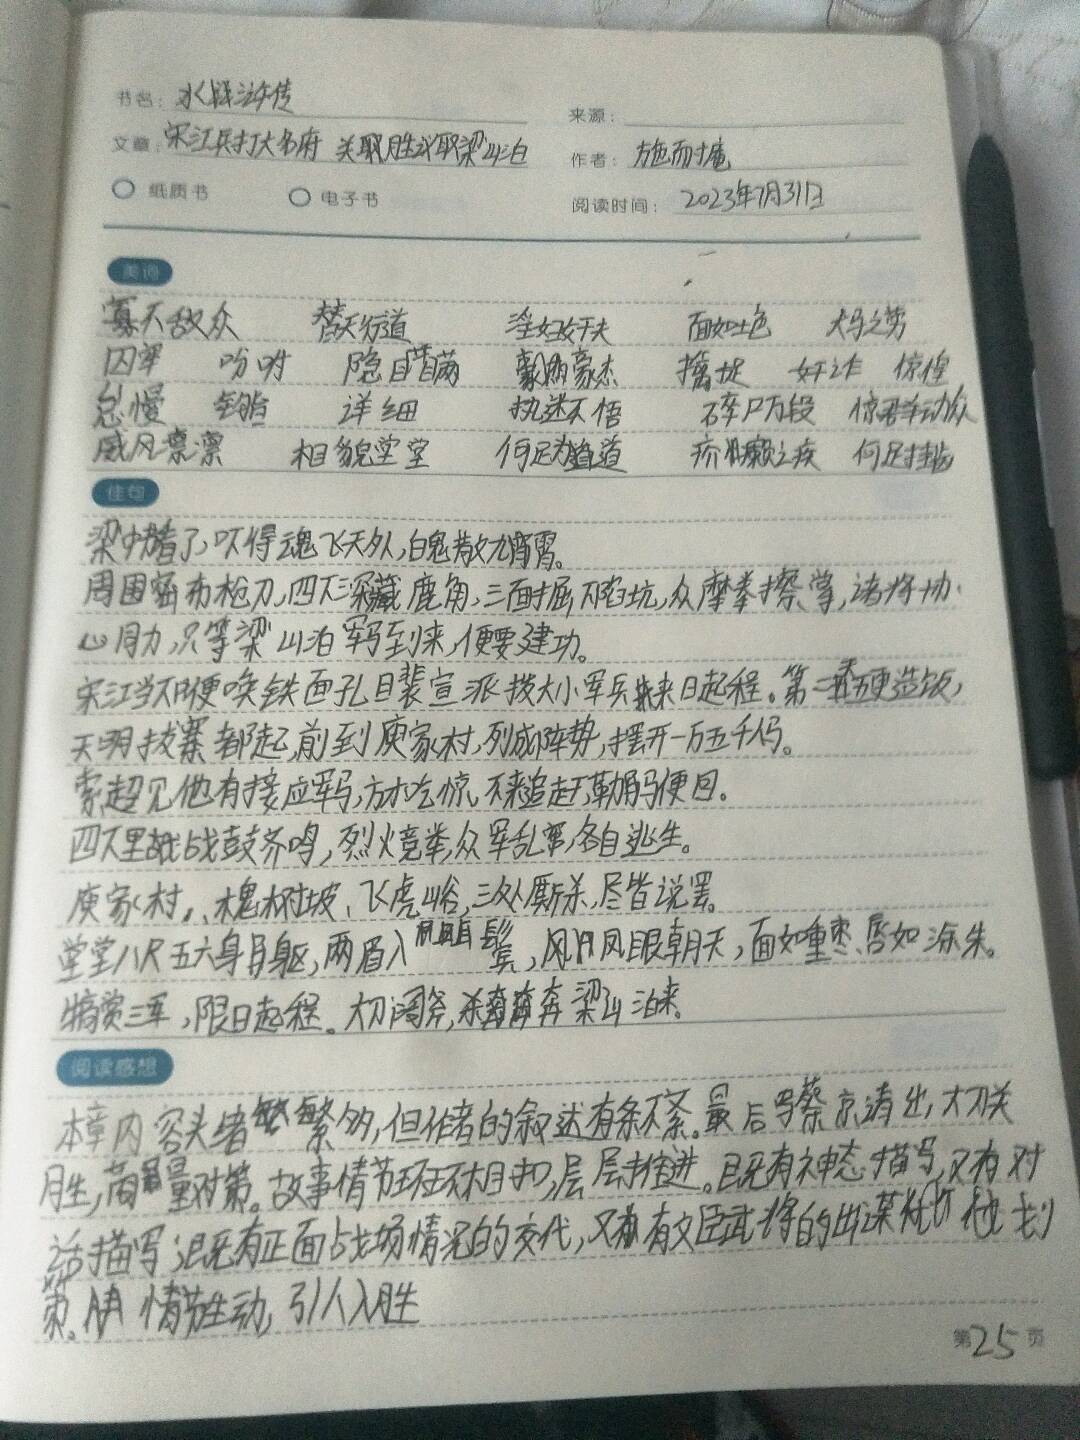 书名：水浒传
来源：
文章：宋江兵打大名府 关胜议取梁山泊
作者：施耐庵
纸质书 电子书
阅读时间：2023年7月31日
美词
寡不敌众 替天行道 淫妇奸夫 面如土色 犬马之劳
囚车 吩咐 隐瞒 豪杰 擒捉 奸诈 惊惶
怠慢 详细 执迷不悟 碎尸万段 惊群动众
威风凛凛 相貌堂堂 何足道 疥癞之疾 何足挂齿
佳句
梁中书看了，吓得魂飞天外，魄散九霄。
周围密布枪刀，四下深藏鹿角，三面掘下陷坑，众摩拳擦掌，诸将协
心同力，只等梁山泊军马到来，便要建功。
宋江当下便唤铁面孔目裴宣派拨大小军兵来日起程。第二五更造饭，
天明拔寨都起，前到庾家村，列成阵势，摆开一万五千人。
索超见他有接应军马，方才吃惊，不来追赶，勒马便回。
四下里战鼓齐鸣，烈火竞举，众军乱窜，各自逃生。
庾家村、槐树坡、飞虎峪，三处厮杀，尽皆说罢。
堂堂八尺五六身躯，两眉入鬓，凤眼朝天，面如重枣，唇如涂朱。
犒赏三军，限日起程。大刀阔斧，杀奔梁山泊来。
阅读感想
本章内容头绪繁多，但作者的叙述有条不紊。最后写蔡京请出，大刀关
胜，商量对策。故事情节环环相扣，层层推进。既有神态描写，又有对
话描写；既有正面战场情况的交代，又有文臣武将的出谋划
策。情节生动，引人入胜
第25页